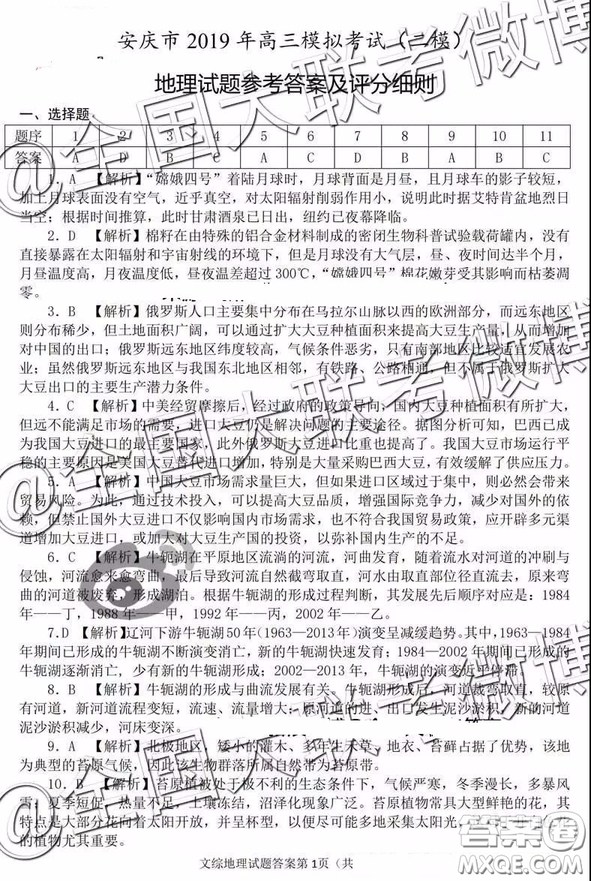 安庆市 2019 年高三模拟考试（二模）
地理试题参考答案及评分细则
一、选择题
题序 1 2 3 4 5 6 7 8 9 10 11
答案 A D B C A C D B A B C
1. A 【解析】“嫦娥四号”着陆月球时，月球背面是月昼，且月球车的影子较短，
加上月球表面没有空气，近乎真空，对太阳辐射削弱作用小，说明此时据艾特肯盆地烈日
当空；根据时间推算，此时甘肃酒泉已日出，纽约已夜幕降临。
2. D 【解析】棉籽在由特殊的铝合金材料制成的密闭生物科普试验载荷罐内，没有
直接暴露在太阳辐射和宇宙射线的环境下，但是月球没有大气层，昼、夜时间达半个月，
月昼温度高，月夜温度低，昼夜温差超过 300℃，“嫦娥四号”棉花嫩芽受其影响而枯萎凋
零。
3. B 【解析】俄罗斯人口主要集中分布在乌拉尔山脉以西的欧洲部分，而远东地区
则分布稀少，但土地面积广阔，可以通过扩大大豆种植面积来提高大豆生产量，从而增加
对中国的出口；俄罗斯远东地区纬度较高，气候条件恶劣，只有南部地区比较适宜发展农
业；虽然俄罗斯远东地区与我国东北地区相邻，有铁路、公路相通，但不属于俄罗斯扩大
大豆出口的主要生产潜力条件。
4. C 【解析】中美经贸摩擦后，经过政府的政策导向，国内大豆种植面积有所扩大，
但远不能满足市场的需要，进口大豆仍是解决问题的主要途径。据图分析可知，巴西已成
为我国大豆进口的最主要国家，此外俄罗斯大豆进口比重也提高了。我国大豆市场运行平
稳的主要原因是美国大豆替代进口增加，特别是大量采购巴西大豆，有效缓解了供应压力。
5. A 【解析】中国大豆市场需求量巨大，但如果进口区域过于集中，则必然会带来
贸易风险。为此，可以通过提高大豆品质，增强国际竞争力，减少对国外的依
赖，但禁止国外大豆进口不仅影响国内市场需求，也不符合我国贸易政策，应开辟多元渠
道增加大豆进口，或加强与大豆生产国的投资，以弥补国内生产的不足。
6. C 【解析】牛轭湖在平原地区流淌的河流，河曲发育，随着流水对河道的冲刷与
侵蚀，河流愈来愈弯曲，最后导致河流自然截弯取直，河水由取直部位径直流去，原来弯
曲的河道被废弃，形成湖泊。根据牛轭湖的形成条件可知，其发展先后顺序对应是：1984
年——丁，1988 年——甲，1992 年——丙，2002 年——乙。
7.D 【解析】辽河下游牛轭湖 50 年（1963—2013 年）演变呈减缓趋势。其中,1963—1984
年期间已形成的牛轭湖不断演变消亡，新的牛轭湖快速发育；1984—2002 年期间已形成的
牛轭湖逐渐消亡，少有新的牛轭湖形成；2002—2013 年，牛轭湖的演变近乎停滞。
8. B 【解析】牛轭湖的形成与曲流发展有关。牛轭湖形成后，河道裁弯取直，较原
有河道，新河道流程变短，流速、流量增大；原河道的进、出口发生泥沙淤积，新的河道
泥沙淤积减少，河床变深。
9. A 【解析】北极地区，矮小的灌木、多年生禾草、地衣、苔藓占据了优势，该地
为典型的苔原气候，因此生物群落所属自然带为苔原带。
10. B 【解析】苔原植被处于极不利的生态条件下，气候严寒，冬季漫长，多暴风
雪，夏季短促，热量不足，土壤冻结，沼泽化现象广泛。苔原植物常具大型鲜艳的花，其
特点是大部分花向着太阳开放，并呈杯形，以便尽可能多地采集阳光，
的植物尤其重要。
文综地理试题答案第 1页（共
@全国大联考微博
答案圈
MXQE.COM